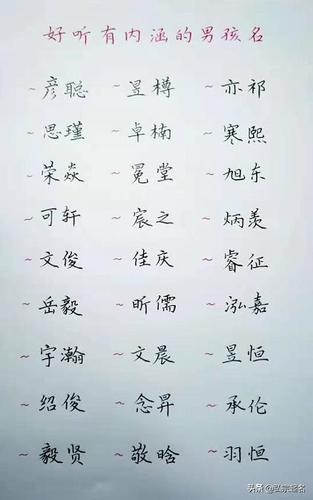 好听有内涵的男孩名
~彦聪 ~昱樽 ~亦祁
~思瑾 ~卓楠 ~寒熙
~荣焱 ~冕堂 ~旭东
~可轩 ~宸之 ~炳羡
~文俊 ~佳庆 ~睿征
~岳毅 ~昕儒 ~泓嘉
~宇瀚 ~文晨 ~昱恒
~绍俊 ~念昇 ~承伦
~毅贤 ~敬晗 ~羽恒
头条 @弘宗起名